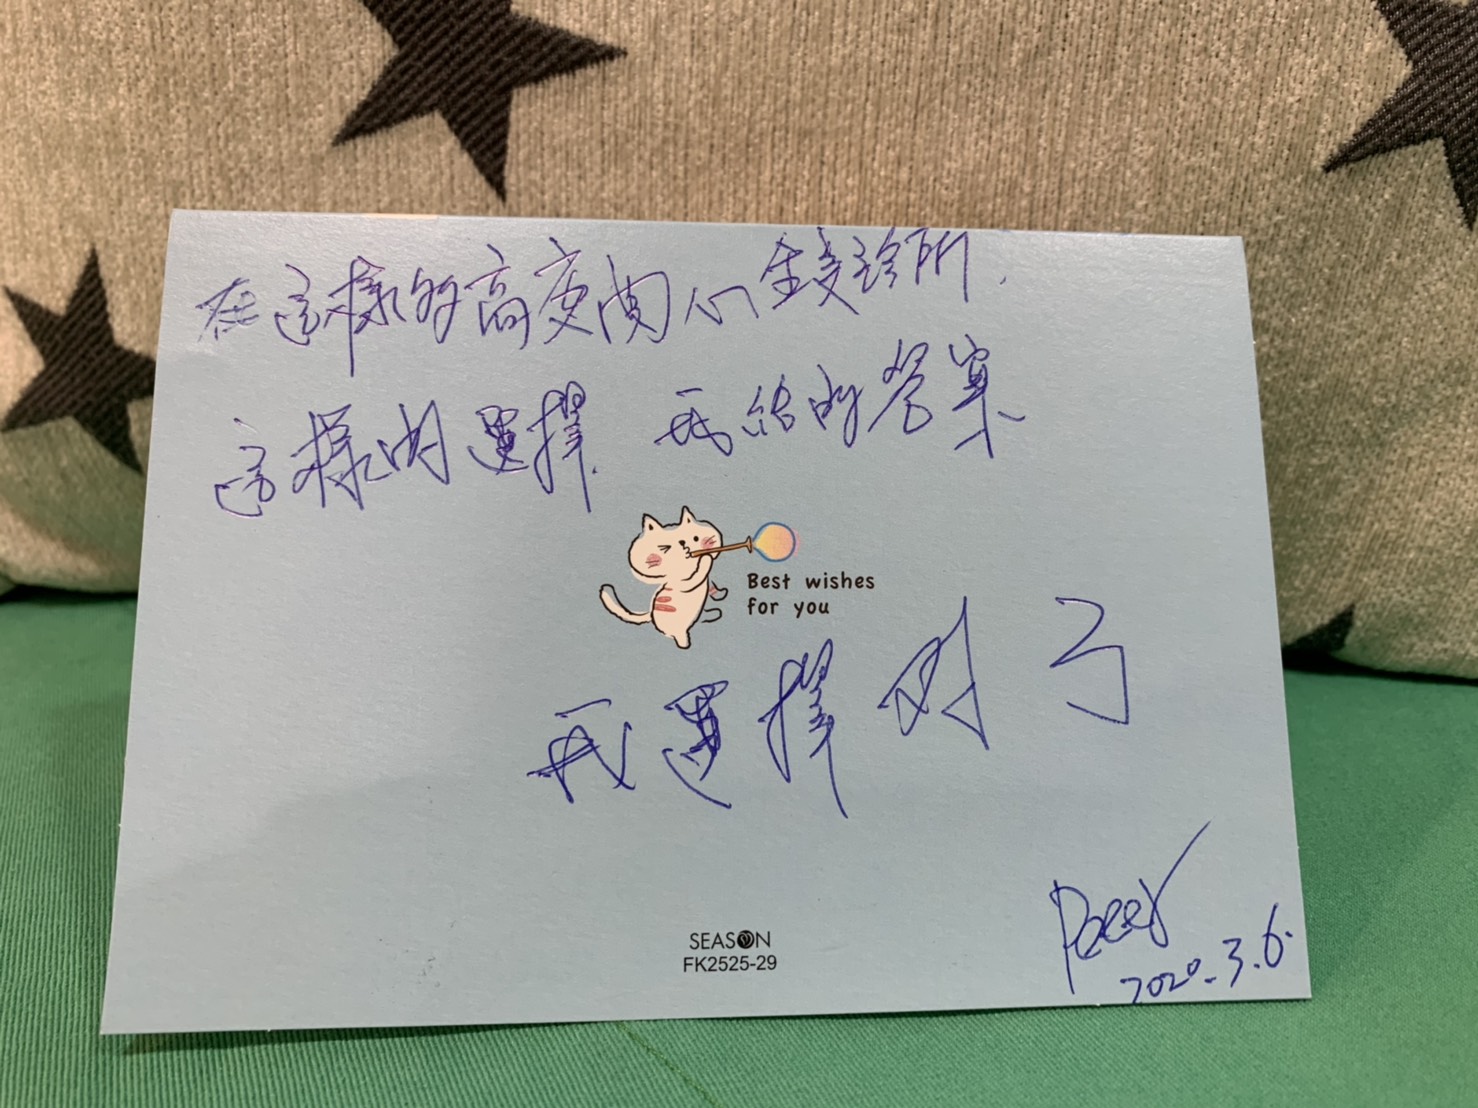 在這樣的高度開心全家診所,
這樣的選擇 我給的答案
Best wishes
for you
我選擇對了
2020.3.6.
SEASON
FK2525-29